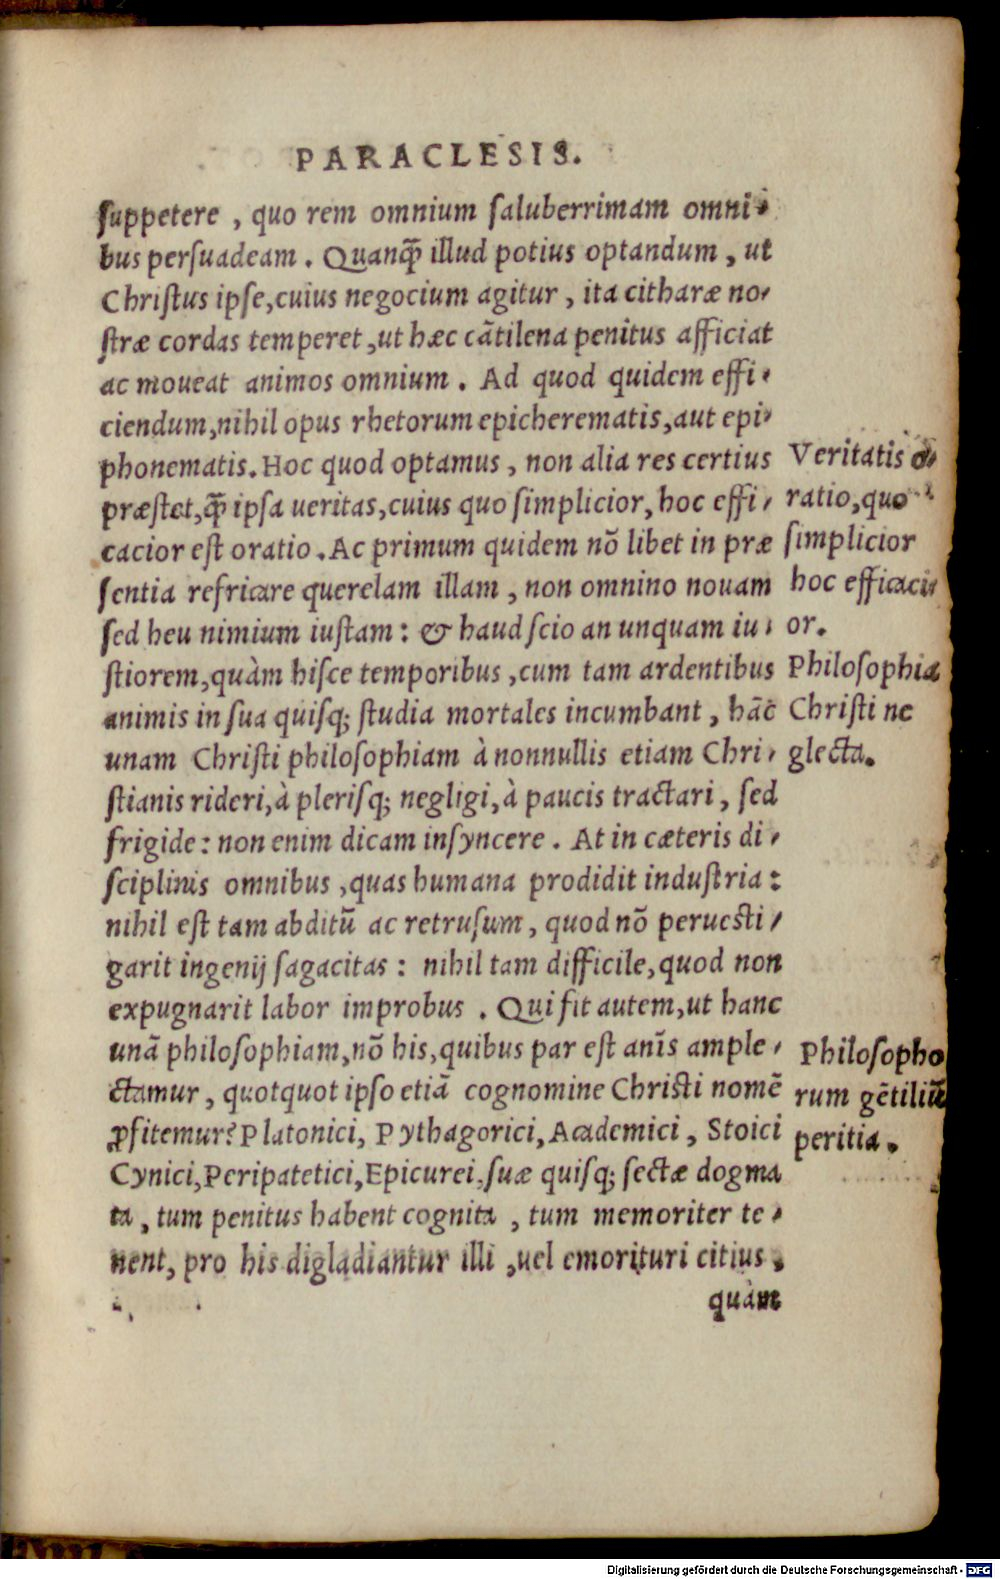 PARACLESIS.
ſuppetere , quo rem omnium ſaluberrimam omni-
bus perſuadeam . Quanq̃ illud potius optandum , ut
Chriſtus ipſe,cuius negocium agitur , ita citharæ no-
ſtræ cordas temperet ,ut hæc cãtilena penitus afficiat
ac moueat animos omnium . Ad quod quidem effi-
ciendum,nihil opus rhetorum epicherematis,aut epi-
phonematis. Hoc quod optamus , non alia res certius
præſtet,q̃ ipſa ueritas,cuius quo ſimplicior, hoc effi-
cacior eſt oratio . Ac primum quidem nõ libet in præ
ſentia refricare querelam illam , non omnino nouam
ſed heu nimium iuſtam : & haud ſcio an unquam iu-
ſtiorem,quàm hiſce temporibus ,cum tam ardentibus
animis in ſua quiſq; ſtudia mortales incumbant , hãc
unam Chriſti philoſophiam à nonnullis etiam Chri-
ſtianis rideri,à pleriſq; negligi,à paucis tractari , ſed
frigide : non enim dicam inſyncere . At in cæteris di-
ſciplinis omnibus ,quas humana prodidit induſtria :
nihil eſt tam abditũ ac retruſum , quod nõ perueſti-
garit ingenij ſagacitas : nihil tam difficile,quod non
expugnarit labor improbus . Qui fit autem,ut hanc
unã philoſophiam,nõ his,quibus par eſt anĩs ample-
ctamur , quotquot ipſo etiã cognomine Chriſti nomẽ
ꝓfitemur? Platonici, Pythagorici, Academici , Stoici
Cynici,Peripatetici,Epicurei,ſuæ quiſq; ſectæ dogma
ta , tum penitus habent cognita , tum memoriter te-
nent, pro his digladiantur illi ,uel emorituri citius ,
quàm
Veritatis o-
ratio,quo
ſimplicior
hoc efficaci-
or.
Philoſophia
Chriſti ne
glecta.
Philoſopho
rum gẽtiliũ
peritia.
Digitalisierung gefördert durch die Deutsche Forschungsgemeinschaft - DFG